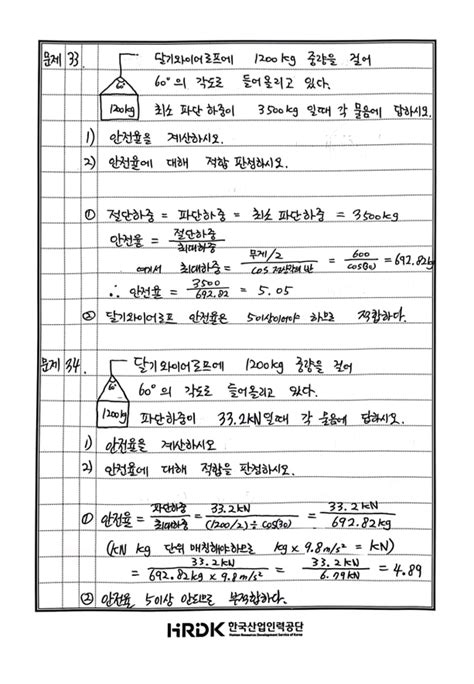 문제 33. 달기와이어로프에 1200kg 중량을 걸어
60° 60°의 각도로 들어올리고 있다.
1200kg 최소 파단 하중이 3500kg 일때 각 물음에 답하시오.
1) 안전율을 계산하시오.
2) 안전율에 대해 적합 판정하시오.
① 절단하중 = 파단하중 = 최소 파단하중 = 3500kg
안전율 = 절단하중 / 최대하중
여기서 최대하중 = 무게/2 / cos = 600 / cos(30) = 692.82kg
∴ 안전율 = 3500 / 692.82 = 5.05
② 달기와이어로프 안전율은 5이상이어야 하므로 적합하다.
문제 34. 달기와이어로프에 1200kg 중량을 걸어
60° 60°의 각도로 들어올리고 있다.
1200kg 파단하중이 33.2kN일때 각 물음에 답하시오.
1) 안전율을 계산하시오
2) 안전율에 대해 적합을 판정하시오.
① 안전율 = 파단하중 / 최대하중 = 33.2kN / (1200/2) ÷ cos(30) = 33.2kN / 692.82kg
(kN kg 단위 매칭해야하므로 kg × 9.8m/s² = kN)
= 33.2kN / 692.82kg × 9.8m/s² = 33.2kN / 6.79kN = 4.89
② 안전율 5이상 안되므로 부적합하다.
HRDK 한국산업인력공단
Human Resources Development Service of Korea